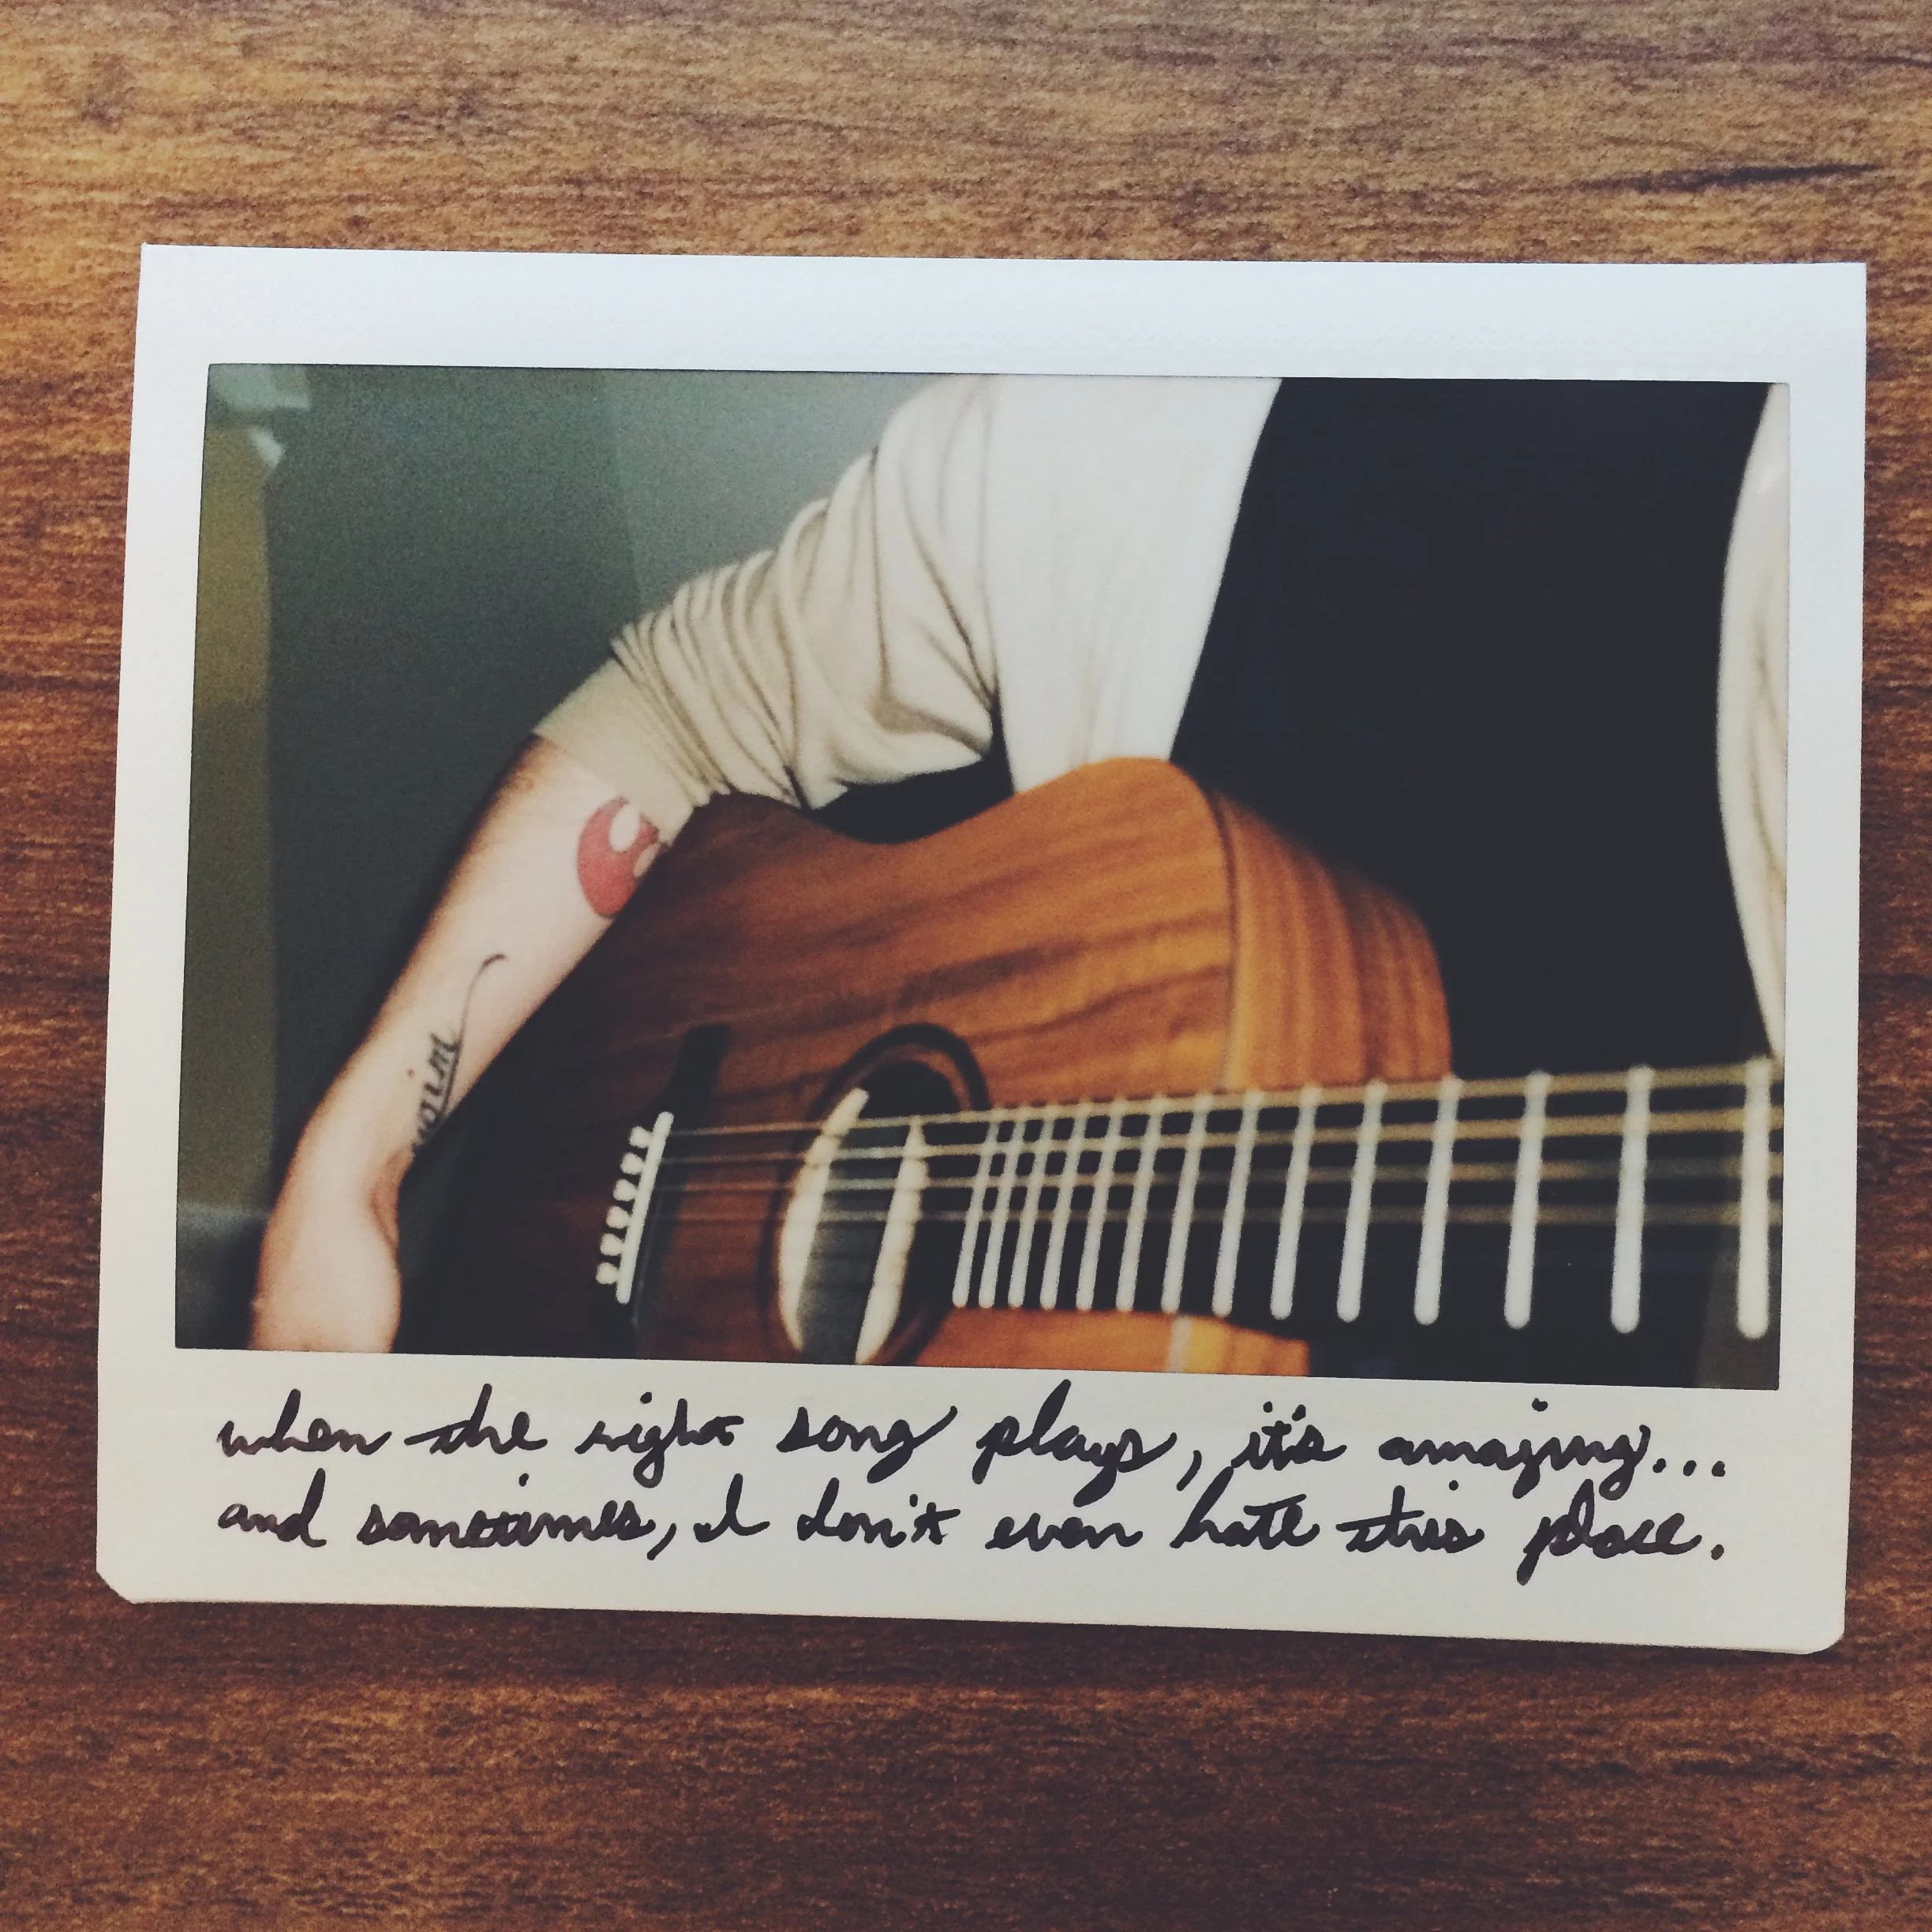 when the right song plays, it's amazing...
and sometimes, I don't even hate this place.